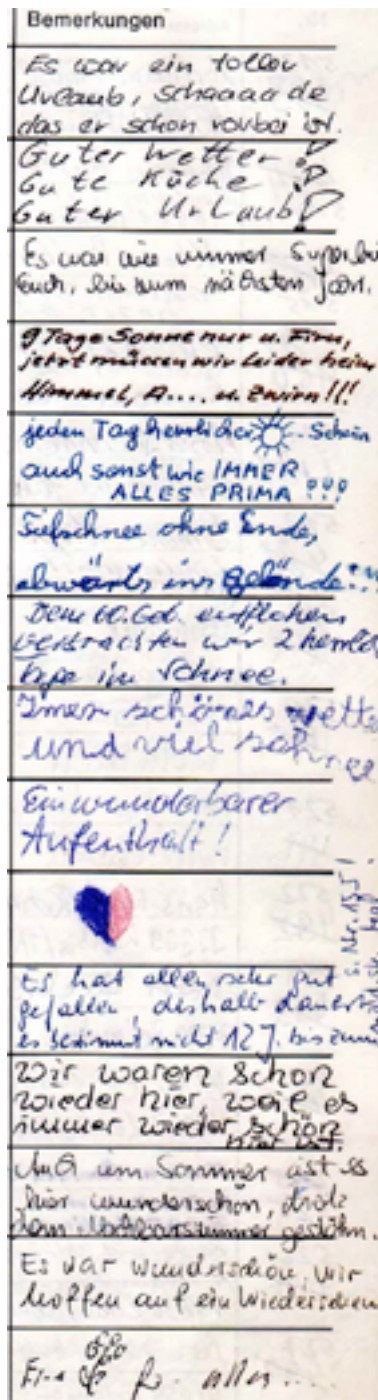 Bemerkungen
Es war ein toller
Urlaub, schaaaade
das er schon vorbei ist.
Guter Wetter!
Gute Küche!
Guter Urlaub!
Es war wie immer Super bei
Euch, bis zum nächsten
9 Tage Sonne nur u. Firn,
jetzt müssen wir leider heim
Himmel, A.... u. Zwirn!!!
jeden Tag herrlicher -Schein
auch sonst wie IMMER
ALLES PRIMA !!!
Tiefschnee ohne Ende,
abwärts ins Gelände...
Dem 60. Geb. entflohen
verbrachten wir 2 herrl.
Tage im Schnee.
Imer schönes wette
und viel schnee
Ein wunderbarer
Aufenthalt!
s. Nr. 155!
Es hat allen sehr gut
gefallen, deshalb dauert
es bestimmt nicht 12 J. bis zum
Wir waren schon
wieder hier, weil es
immer wieder schön
hier ist.
Auch im Sommer ist es
hier wunderschön,
Es war wunderschön, wir
hoffen auf ein Wiedersehen
alles ...